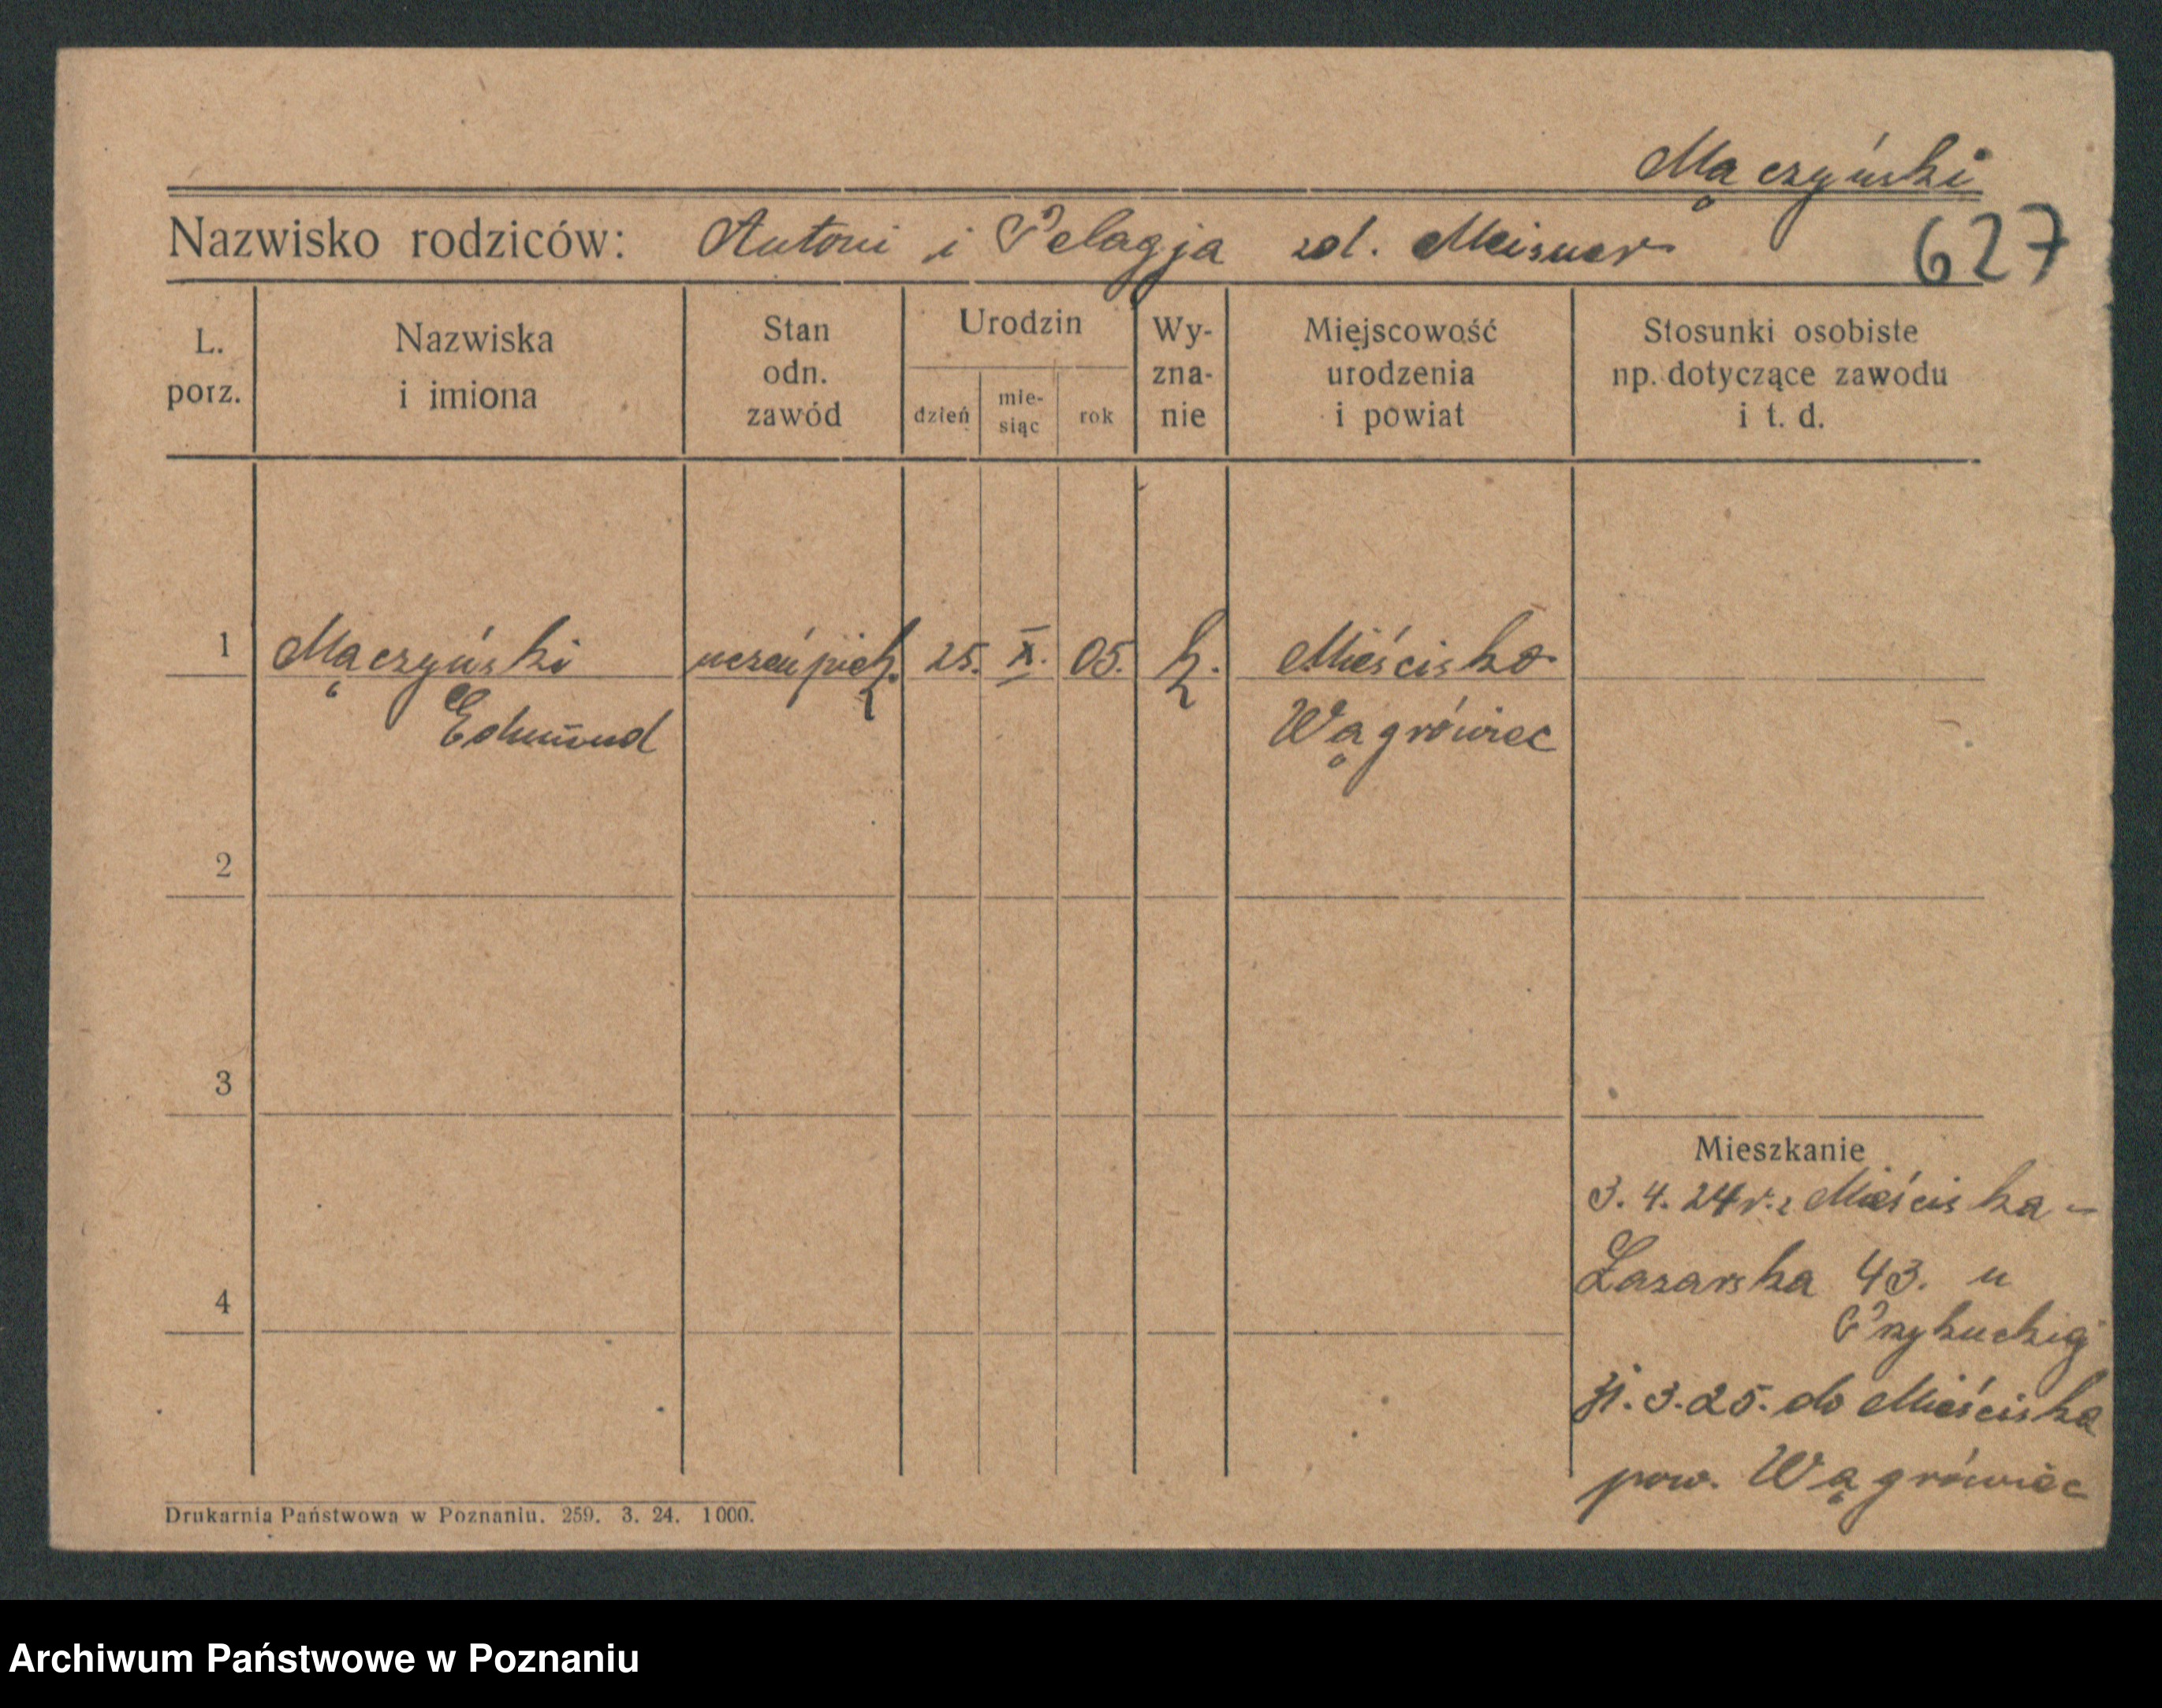 Mączyński
627
Nazwisko rodziców: Antoni i Pelagja zd. Meisner
L. porz.
Nazwiska i imiona
Stan odn. zawód
Urodzin
dzień
mie- siąc
rok
Wy- zna- nie
Miejscowość urodzenia i powiat
Stosunki osobiste np. dotyczące zawodu i t. d.
1 Mączyński uczeń piek. 25. X. 05. k. Mieścisko
Edmund Wągrówiec
2
3
4
Mieszkanie
3. 4. 24 r. z Mieściska -
Łazarska 43. u
31. 3. 25. do Mieściska
pow. Wągrówiec
Drukarnia Państwowa w Poznaniu. 259. 3. 24. 1000.
Archiwum Państwowe w Poznaniu